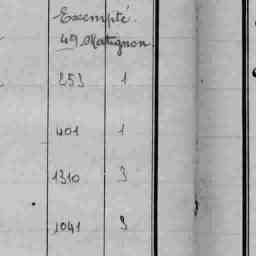 Exempté.
49 Matignon.
253 1
401 1
1310 3
1041 3